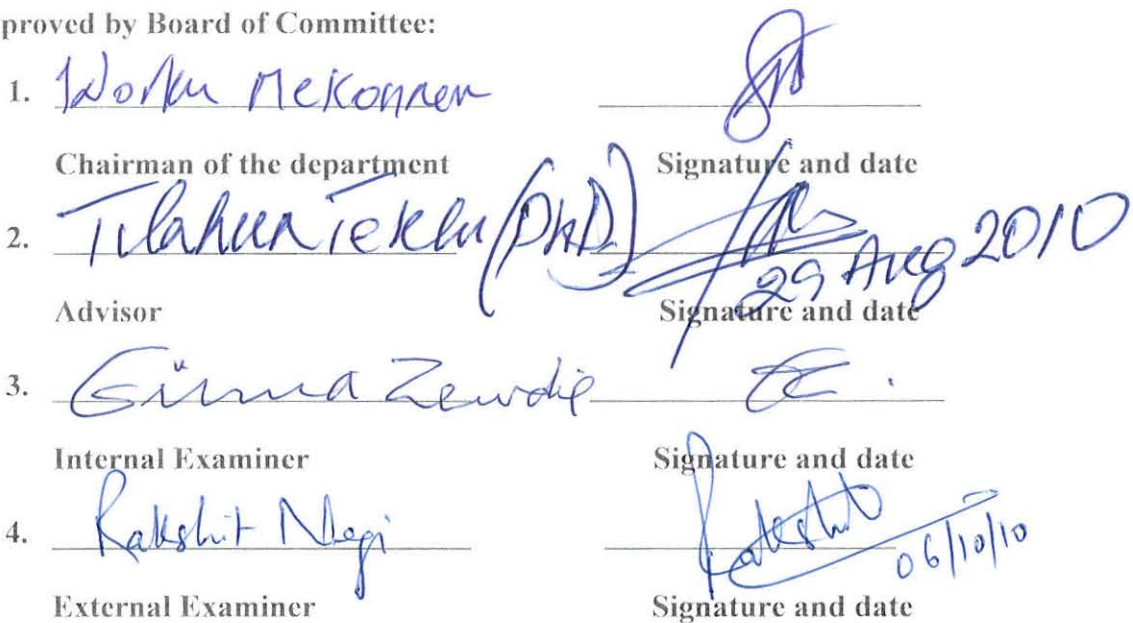 proved by Board of Committee:
1. Worku Mekonnen
Chairman of the department Signature and date
2. Tilahun Teklu (PhD) 29 Aug 2010
Advisor Signature and date
3. Girma Zewdie
Internal Examiner Signature and date
4. Rakshit Negi Rakshit 06/10/10
External Examiner Signature and date